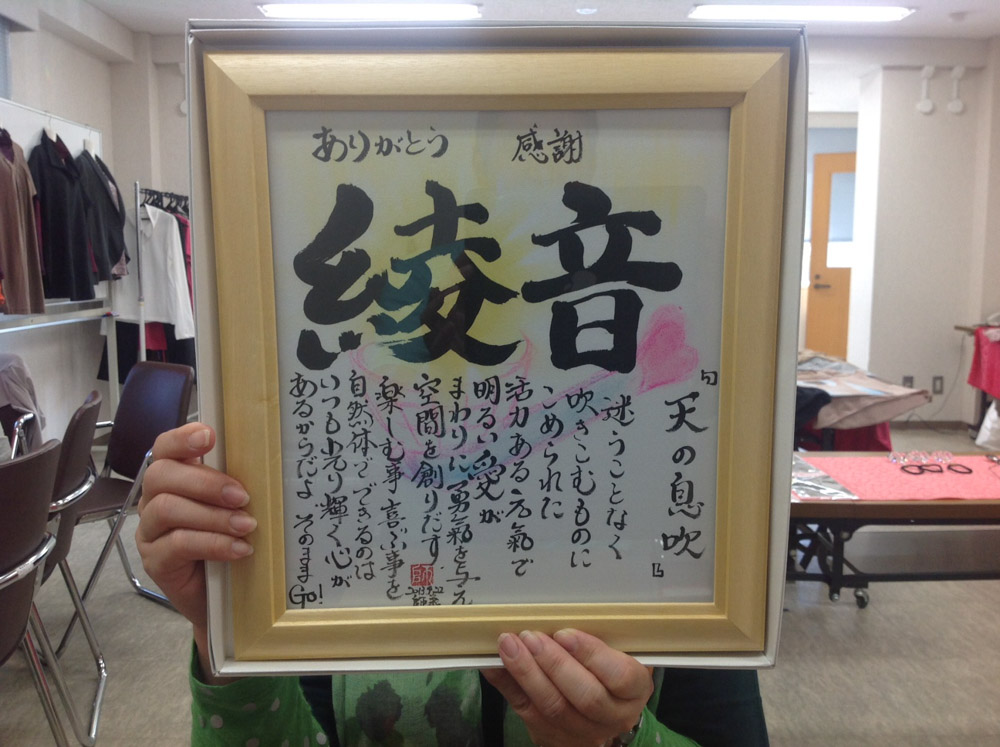 ありがとう 感謝
綾音
「天の息吹」
迷うことなく
吹きこむものに
こめられた
活力ある元氣で
明るい愛が
まわりに勇氣を与え
空間を創りだす
楽しむ事喜ぶ事を
自然体でできるのは
いつも光り輝く心が
あるからだよ そのままGo!
師
2013.9.22